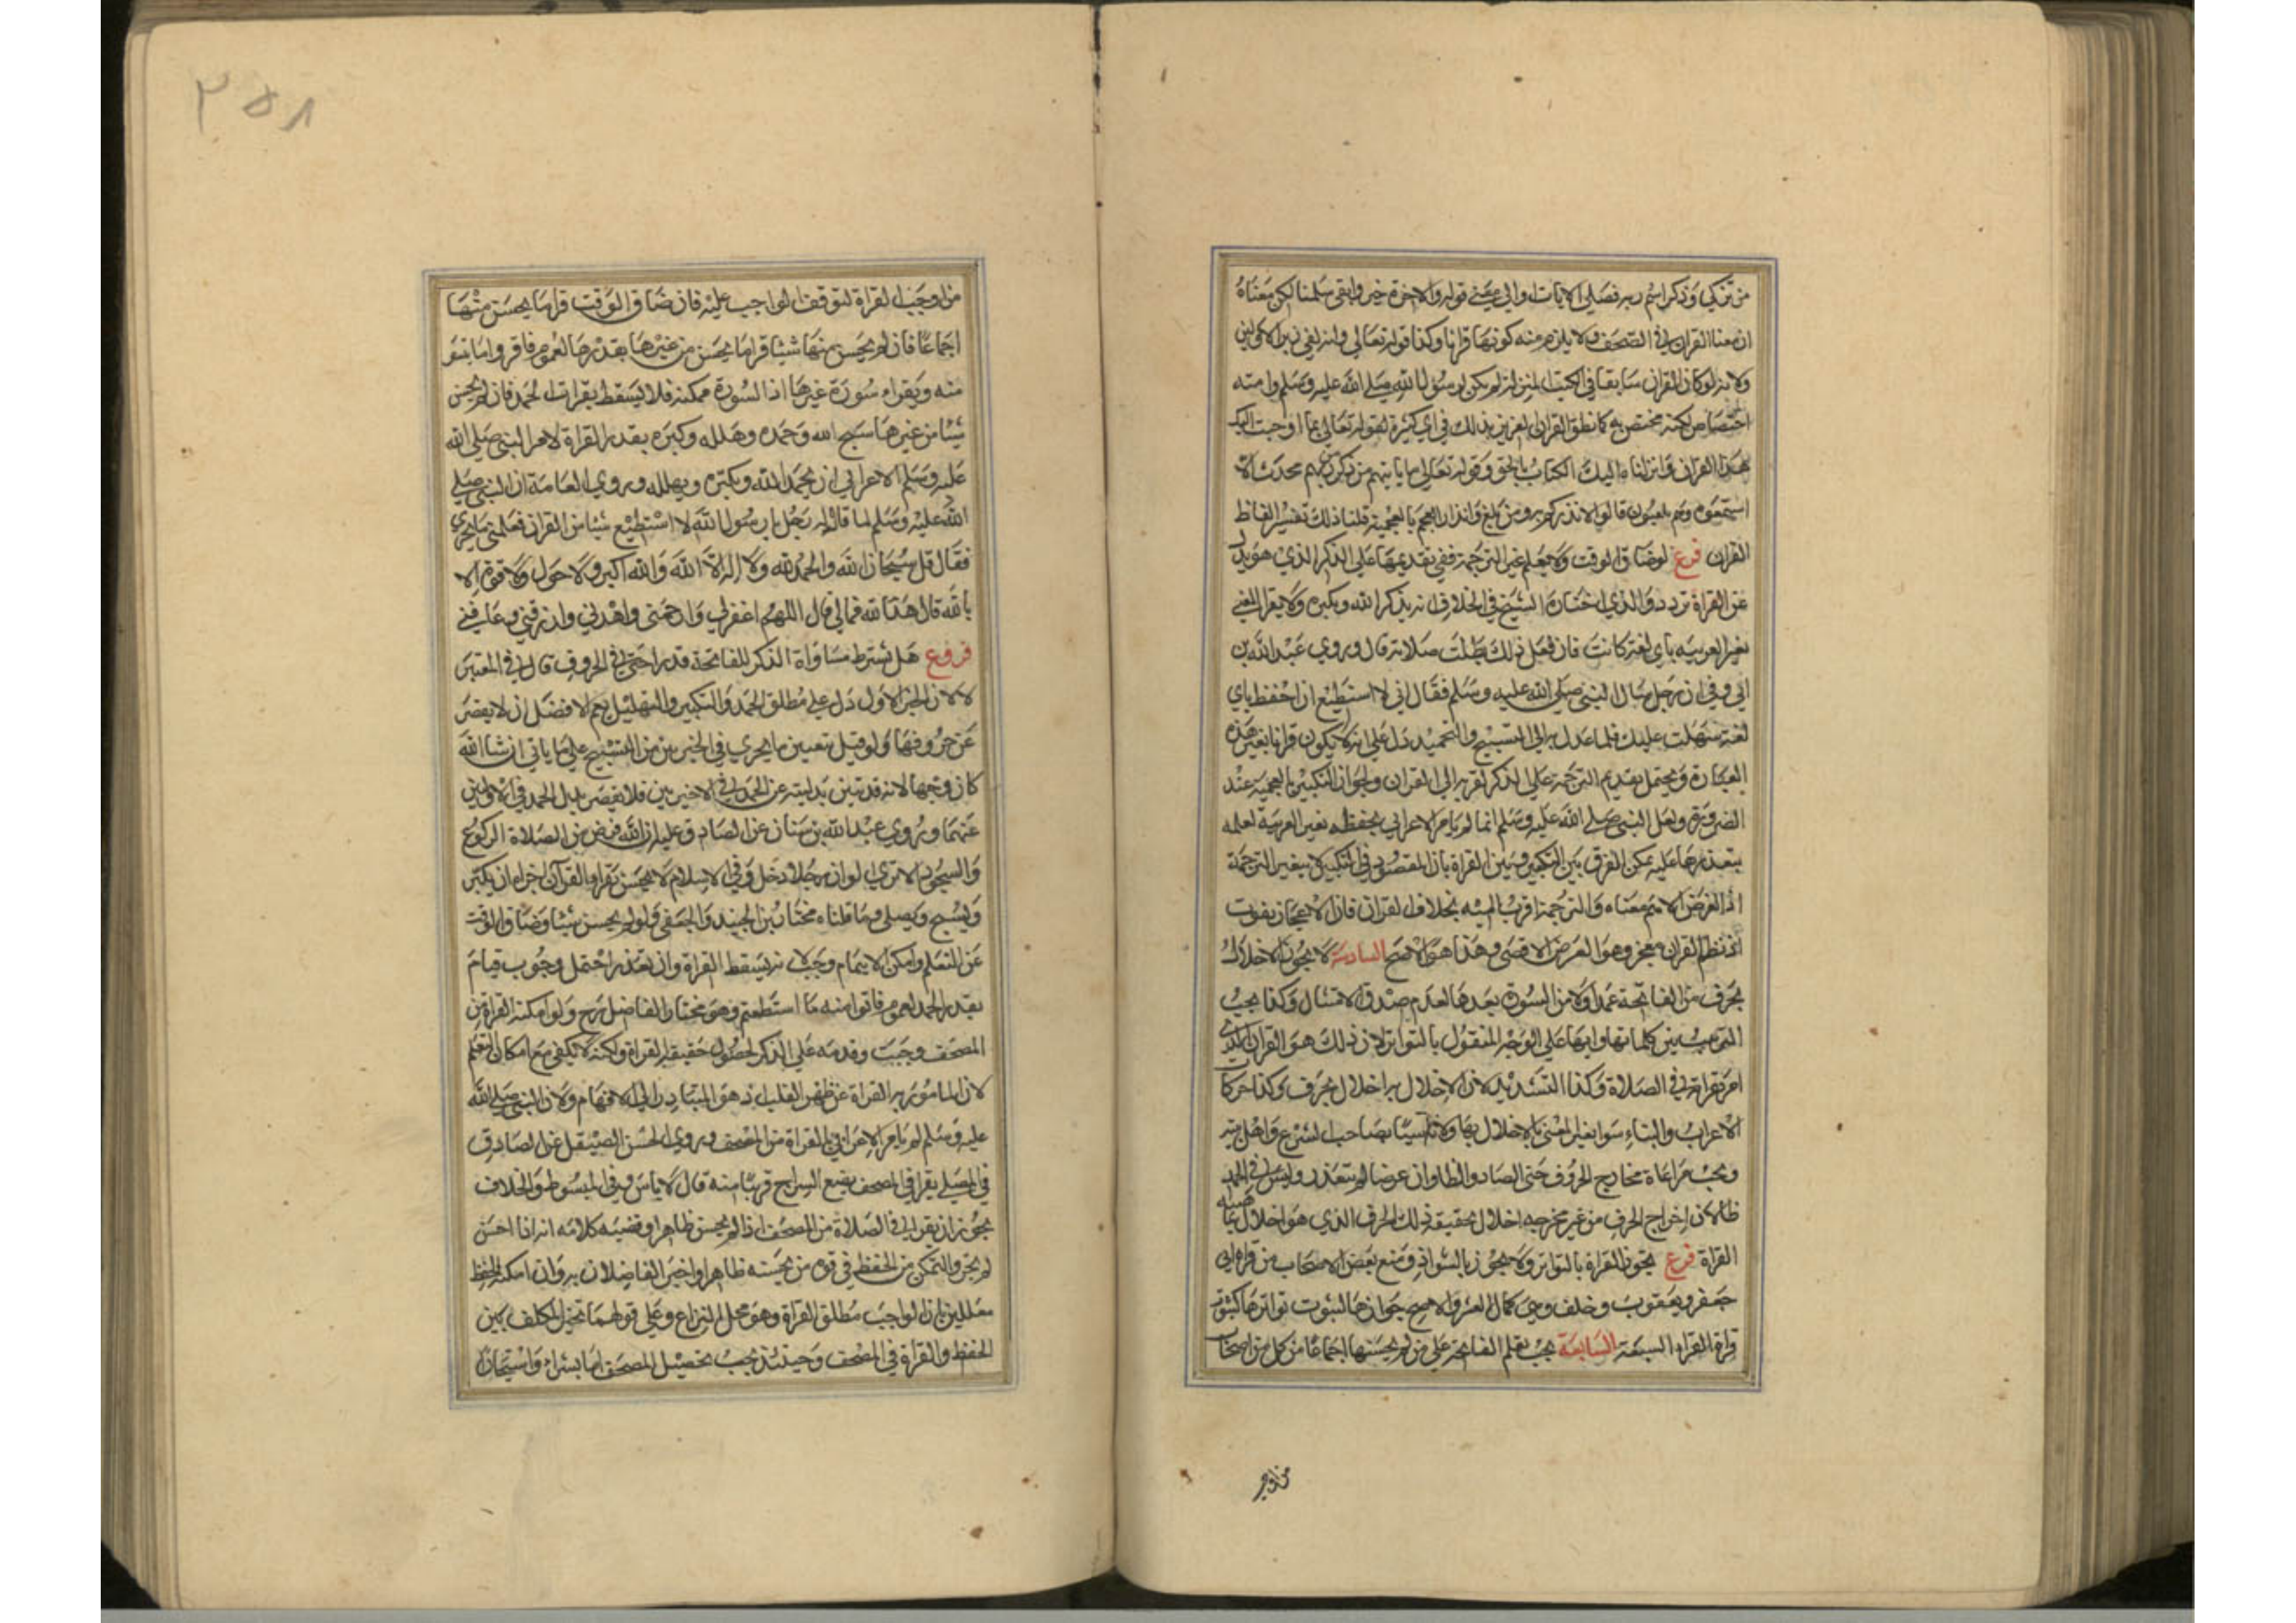 من تزكي وذكر اسم ربه فصلي الايات والي معني قوله والاخرة خير وابقي سلمنا لكن معناه
ان معنا القران في الصحف ولا يلزم منه كونها قرانا وكذا قوله تعالي وانه لفي زبر الاولين
ولانه لو كان القران سابقا في الكتب المنزلة لم يكن لرسول الله صلي الله عليه وسلم وامته
اختصاص لكنه مختص به كما نطق القران العزيز بذلك في اي كثيرة لقوله تعالي بما اوحيت اليك
هذا القران وانزلناه اليك الكتاب بالحق وقوله تعالي ما ياتيهم من ذكر من ربهم محدث الا
استمعوه وهم يلعبون قالوا لانذركم به ومن بلغ وانذار العجم بالعجمية قلنا ذلك تفسير الفاظ
القران فرع لو ضاق الوقت ولا يعلم غير الترجمة ففي تقديمها علي الذكر الذي هو بدل
عن القراة تردد والذي اختاره الشيخ في الخلاف انه يذكر الله ويكبره ولا يقرا المعني
بغير العربيه باي لغة كانت فان فعل ذلك بطلت صلاته قال وروي عبد الله بن
ابي وفي ان رجل سال النبي صلي الله عليه وسلم فقال اني لا استطيع ان احفظ باي
لغة سهلت عليك فلما عدل به الي التسبيح والتحميد دل علي انه لا يكون قرانا بغير هذه
العبارة ويحتمل تقديم الترجمة علي الذكر لقربه الي القران ولجواز التكبير بالعجمية عند
الضرورة ولعل النبي صلي الله عليه وسلم انما لم يامر الاعرابي بحفظه بغير العربية لعلمه
بتعذرها عليه يمكن الفرق بين التكبير وبين القراة بان المقصود في التكبير لا يتغير الترجمة
اذ الغرض الاهم معناه والترجمة اقرب اليه بخلاف القران فان الاعجاز يفوت
اذ نظم القران معجز وهو الغرض الاقصى وهذا هو الاصح السادسة لا يجوز الاخلال
بحرف من الفاتحة عمدا ولا من السورة بعدها لعدم صدق الامتثال وكذا يجب
الترتيب بين كلماتها وايها علي الوجه المنقول بالتواتر لان ذلك هو القران الذي
امر بقراته في الصلاة وكذا التشديد لان الاخلال به اخلال بحرف وكذا حركات
الاعراب والبناء سوا تغير المعني بالاخلال بها ولا تاسيا بصاحب الشرع واهل بيته
ويجب مراعاة مخارج الحروف حتى الضاد والظا وان عرضا لم يتعذر وليس في الحمد
ظا لان اخراج الحرف من غير مخرجه اخلال بحقيقة ذلك الحرف الذي هو اخلال بماهية
القراة فرع يجوز القراة بالتواتر ولا يجوز بالشواذ ومنع بعض الاصحاب من قراة ابي
جعفر ويعقوب وخلف وهي كمال العشر والاصح جوازها لثبوت تواترها كثبوت
قراة القراء السبعة السابعة يجب تعلم الفاتحة علي من لم يحسنها اجماعا من كل من اصحاب
من اوجب
٢٥٨
من اوجب القراة لتوقف الواجب عليه فان ضاق الوقت قرا ما يحسن منها
اجماعا فان لم يحسن منها شيئا قرا ما يحسن من غيرها بقدرها لعموم فاقروا ما تيسر
منه ويقراء سورة غيرها اذا السورة ممكنه فلا يسقط بقرات الحمد فان لم يحسن
شيئا من غيرها سبح الله وحمده وهلله وكبره بقدر القراة لامر النبي صلي الله
عليه وسلم الاعرابي ان يحمد الله ويكبره ويهلله وروي العامة ان النبي صلي
الله عليه وسلم لما قال له رجل يا رسول الله لا استطيع شيئا من القران فعلمني ما يجزي
فقال قل سبحان الله والحمد لله ولا اله الا الله والله اكبر ولا حول ولا قوة الا
بالله قال هذا لله فما لي قال اللهم اغفر لي وارحمني واهدني وارزقني وعافني
فروع هل يشترط مساواة الذكر للفاتحة قدرا حتي في الحروف قال في المعتبر
لا لان الخبر الاول دل علي مطلق الحمد والتكبير والتهليل نعم الافضل ان لا يقصر
عن حروفها ولو قيل تعيين ما يجزي في الخبرين من التسبيح علي ما ياتي ان شا الله
كان وجها لانه قد تبين بدليته عن الحمد في الاخيرتين فلا يقصر بدل الحمد في الاوليين
عنهما وروي عبد الله بن سنان عن الصادق عليه ان الله فرض من الصلاة الركوع
والسجود الا تري لو ان رجلا دخل في الاسلام لا يحسن يقراء القرآن اجزاه ان يكبر
ويسبح ويصلي وما قلناه مختار بن الجنيد والجعفي ولو لم يحسن شيئا وضاق الوقت
عن التعلم وامكن الايتمام وجب لانه يسقط القراة وان تعذر احتمل وجوب قيام
بقدر الحمد لعموم فاتوا منه ما استطعتم وهو مختار الفاضل رح ولو امكنه القراة من
المصحف وجبت وقدمه علي الذكر لحصول حقيقة القراة ولكنه لا يكفي مع امكان التعلم
لان المامور به القراة عن ظهر القلب اذ هو المتبادر الي الافهام ولان النبي صلي الله
عليه وسلم لم يامر الاعرابي بالقراة من المصحف وروي الحسن الصيقل عن الصادق
في المصلي يقرا في المصحف يضع السراج قريبا منه قال لا باس وفي المبسوط والخلاف
يجوز ان يقرا في الصلاة من المصحف اذا لم يحسن ظاهرا وقضيه كلامه انه اذا احسن
لم يجز والتمكن من الحفظ في قوه من يحسنه ظاهرا واختر الفاضلان به وان امكنه الحفظ
معللين بان الواجب مطلق القراة وهو محل النزاع وعلي قولهما تخير المكلف بين
الحفظ والقراة في المصحف وحينئذ يجب تحصيل المصحف اما بشراء واستيجار